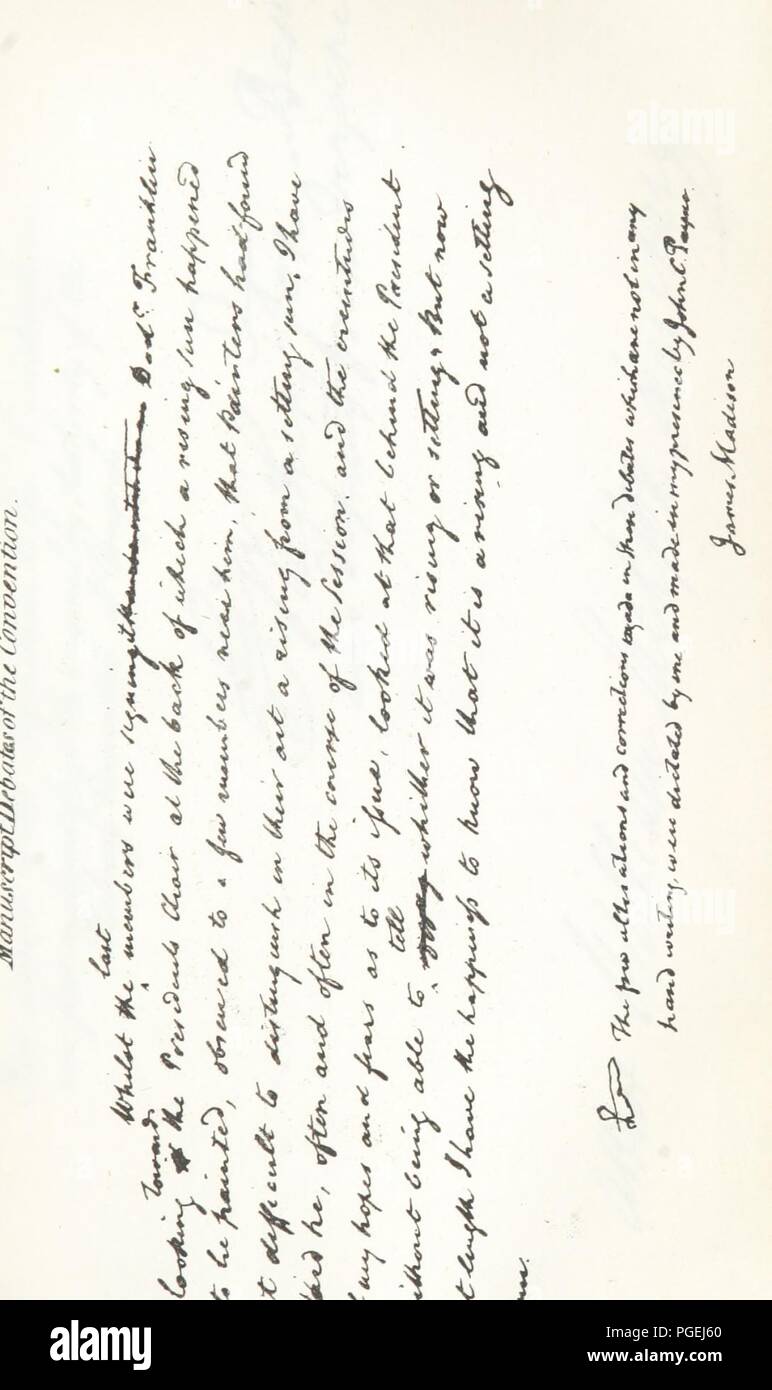 Manuscript Debates of the Convention.
last
Whilst the members were signing it Doctr. Franklin
towards
looking the Presidents Chair at the back of which a rising sun happened
to be painted, observed to a few members near him, that Painters had found
t difficult to distinguish in their art a rising from a setting sun, I have
said he, often and often in the course of the Session, and the vicissitudes
f my hopes and fears as to its issue, looked at that behind the President
tell
ithout being able to whether it was rising or setting, But now
t length I have the happiness to know that it is a rising and not a setting
un.
The few alterations and corrections made in these debates which are not in my
hand writing, were dictated by me and made in my presence by John C. Payne.
James Madison
alamy
Image ID: PGEJ60
www.alamy.com